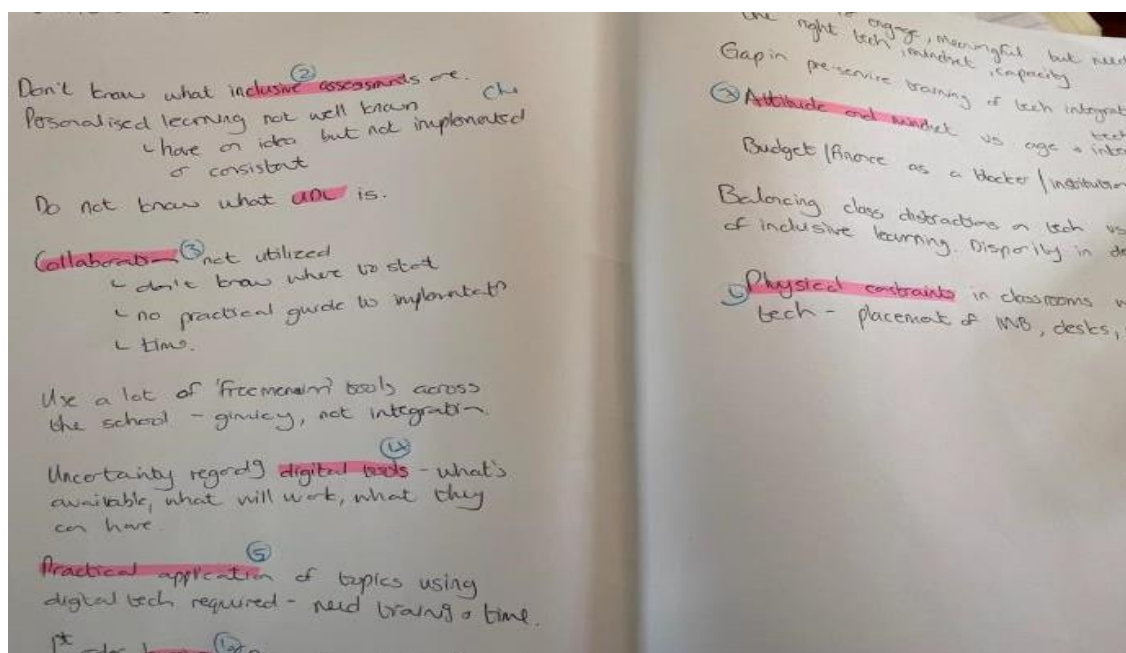 ②
Don't know what inclusive assessments are.
Personalised learning not well known
have an idea but not implemented
or consistent
Do not know what UDL is.
Collaboration ③ not utilized
don't know where to start
no practical guide to
time.
Use a lot of tools across
the school - , not integration.
④
Uncertainty digital tools - what's
available, what will work, what they
can have.
⑤
Practical application of topics using
digital tech required - need + time.
1st
engage, meaningful but need
the right tech, mindset, capacity
Gap in pre-service training of tech
Attitude and mindset vs age +
tech
Budget / finance as a blocker /
Balancing class distractions on tech vs
of inclusive learning. Disparity in
Physical constraints in classrooms
tech - placement of IWB, desks,